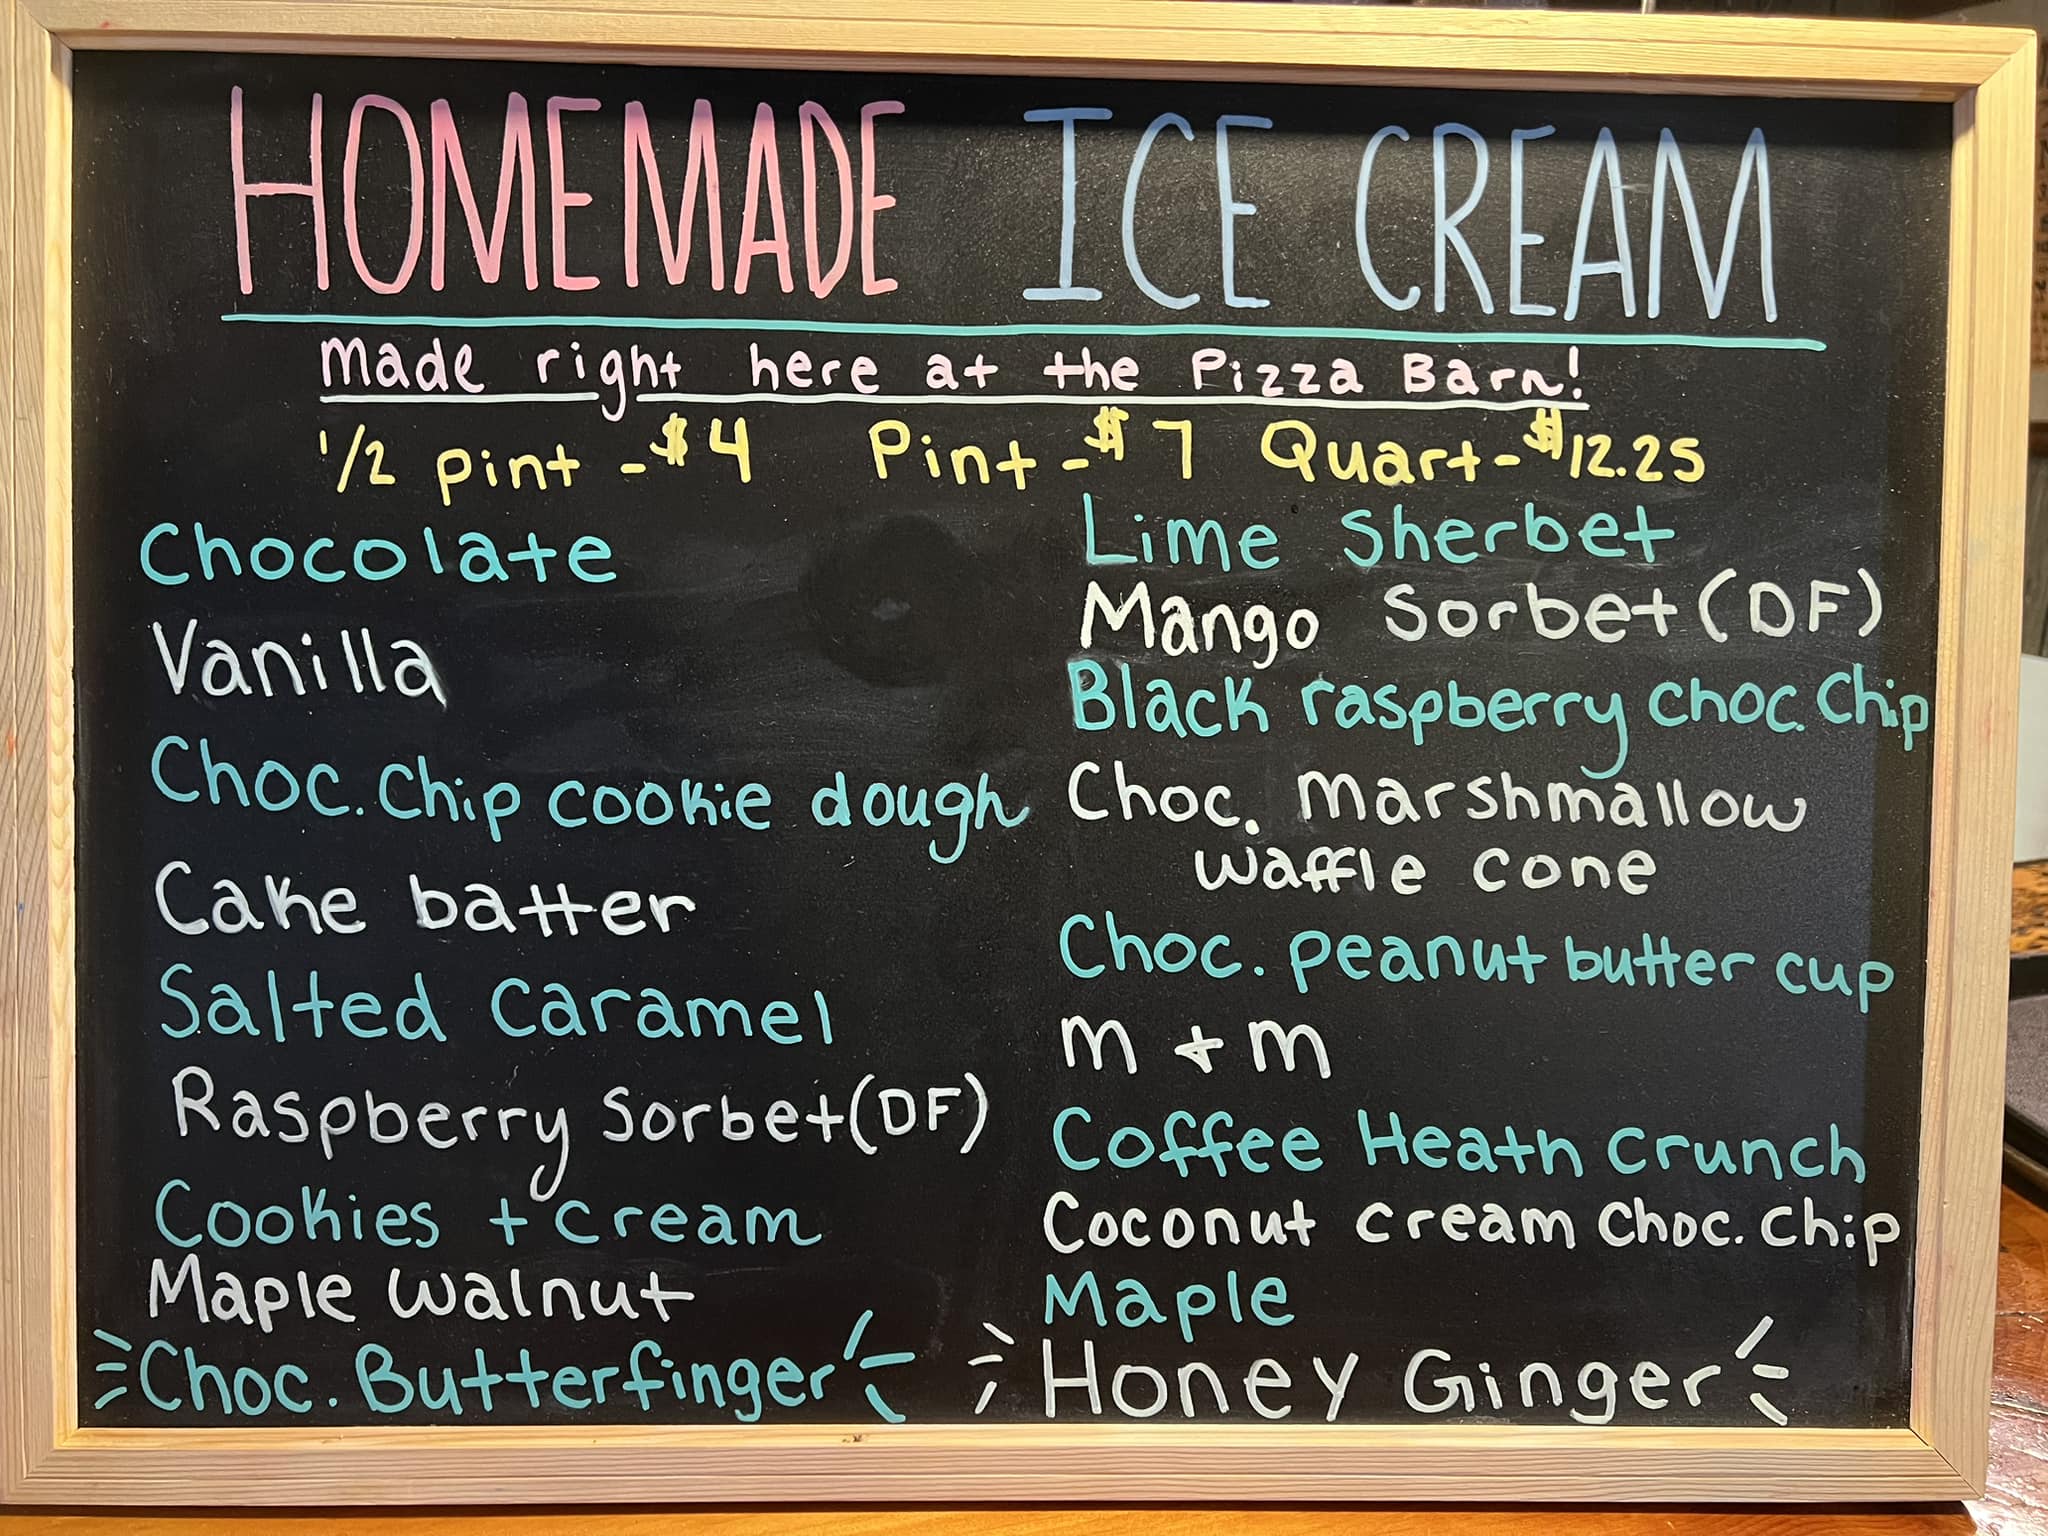 HOMEMADE ICE CREAM
Made right here at the Pizza Barn!
1/2 pint - $4 Pint - $7 Quart - $12.25
Chocolate
Vanilla
Choc. Chip cookie dough
Cake batter
Salted Caramel
Raspberry Sorbet (DF)
Cookies + cream
Maple walnut
Choc. Butterfinger
Lime Sherbet
Mango Sorbet (DF)
Black raspberry choc. Chip
Choc. Marshmallow
waffle cone
Choc. peanut butter cup
m + m
Coffee Heath Crunch
Coconut cream choc. chip
Maple
Honey Ginger